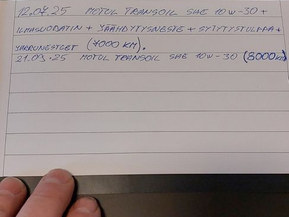 12.07.25 MOTUL TRANSOIL SAE 10W-30 +
ILMASUODATIN + JÄÄHDYTYSNESTE + SYTYTYSTULPPA +
JARRUNESTEET (7000 KM).
21.09.25 MOTUL TRANSOIL SAE 10W-30 (8000KM)